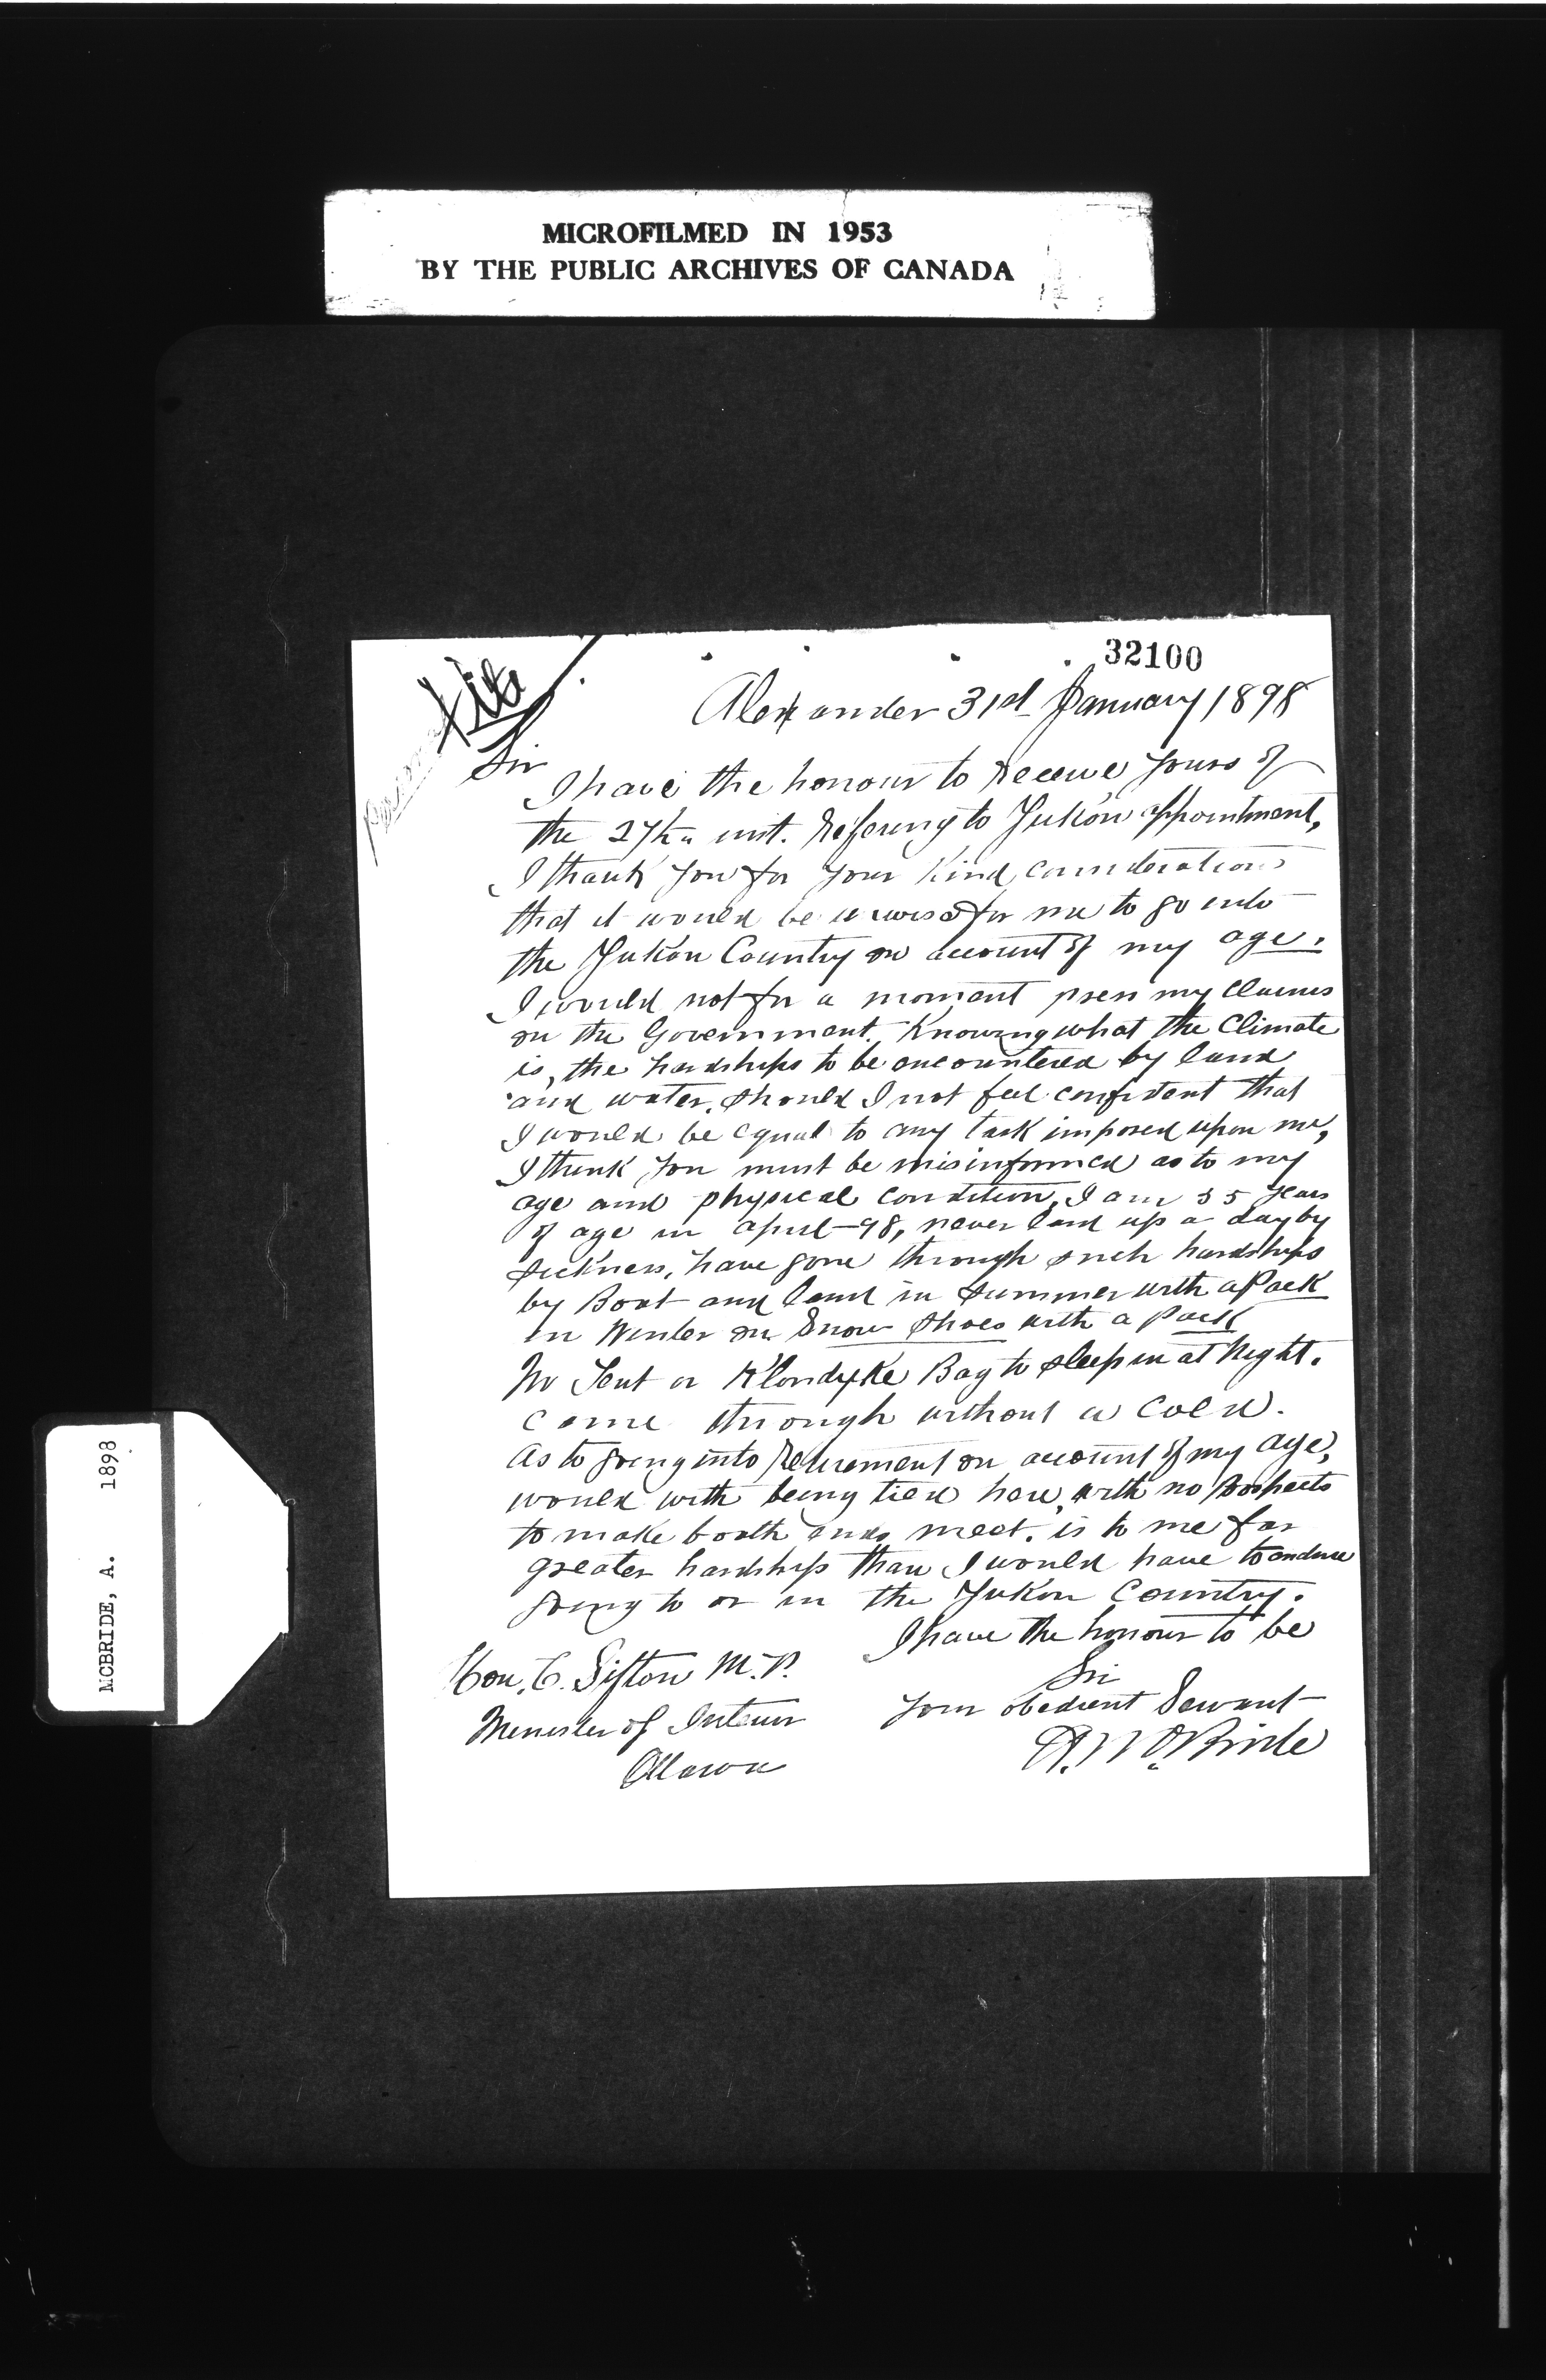 MICROFILMED IN 1953
BY THE PUBLIC ARCHIVES OF CANADA
MCBRIDE, A. 1898
32100
file
Alexander 31st January 1898
Sir
I have the honour to receive yours of
the 27th inst. Refering to Yukon appointment,
I thank you for your kind consideration
that it would be unwise for me to go into
the Yukon Country on account of my age.
I would not for a moment press my claims
on the Government. Knowing what the Climate
is, the hardships to be encountered by land
and water, should I not feel confident that
I would be equal to any task imposed upon me,
I think you must be misinformed as to my
age and physical condition, I am 55 years
of age in april-98, never laid up a day by
sickness, have gone through such hardships
by Boat and land in summer with a Pack
in Winter on Snow Shoes with a Pack
No Tent or Klondyke Bag to sleep in at Night.
came through without a Cold.
As to going into Retirement on account of my age,
would with being tied here, with no prospects
to make booth ends meet, is to me far
greater hardship than I would have to endure
going to or in the Yukon Country.
I have the honour to be
Sir
Your obedient Servant
A. McBride
Hon. C. Sifton M.P.
Minister of Interior
Ottawa